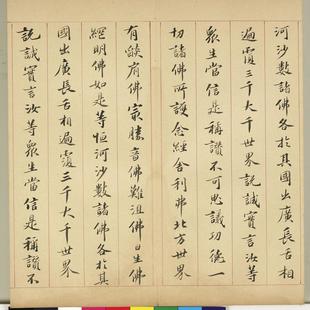 河沙數諸佛各於其國出廣長舌相
遍覆三千大千世界說誠實言汝等
眾生當信是稱讚不可思議功德一
切諸佛所護念經舍利弗北方世界
有燄肩佛最勝音佛難沮佛日生佛
網明佛如是等恒河沙數諸佛各於其
國出廣長舌相遍覆三千大千世界
說誠實言汝等眾生當信是稱讚不